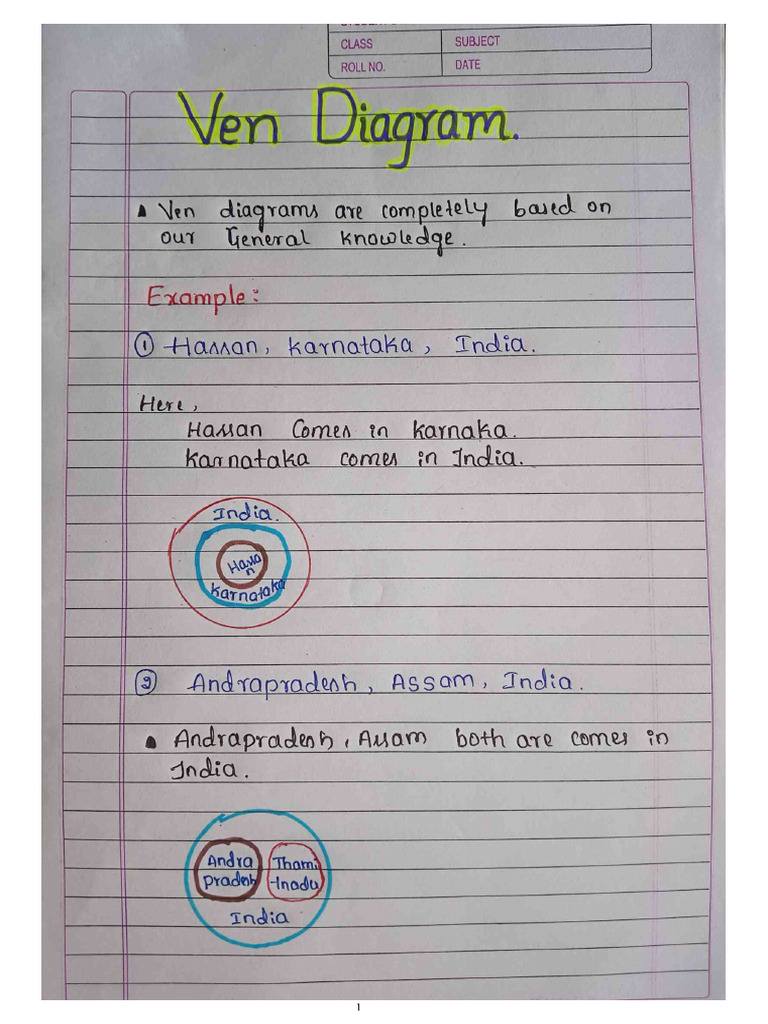 CLASS
SUBJECT
ROLL NO.
DATE
Ven Diagram.
Ven diagrams are completely based on
our General knowledge.
Example:
① Hassan, Karnataka, India.
Here,
Hassan Comes in Karnaka.
Karnataka comes in India.
India.
Hassa
n
Karnataka
② Andrapradesh, Assam, India.
Andrapradesh, Assam both are comes in
India.
Andra
pradesh
Thami
-lnadu
India
1